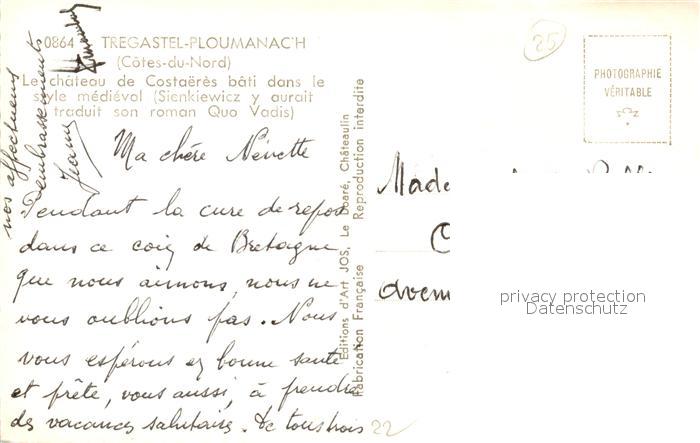 0864 - TREGASTEL-PLOUMANAC'H
(Côtes-du-Nord)
Le château de Costaërès bâti dans le
style médiéval (Sienkiewicz y aurait
traduit son roman Quo Vadis)
Ma chère Nénette
Pendant la cure de repos
dans ce coin de Bretagne
que nous aimons, nous ne
vous oublions pas. Nous
vous espérons en bonne santé
et prête, vous aussi, à prendre
des vacances salutaires. De tous trois
nos affectueux
embrassements
Jeanne
Editions d'Art JOS, Le Doaré, Châteaulin
Fabrication Française Reproduction interdite
25
PHOTOGRAPHIE
VÉRITABLE
Made
aven
privacy protection
Datenschutz
22